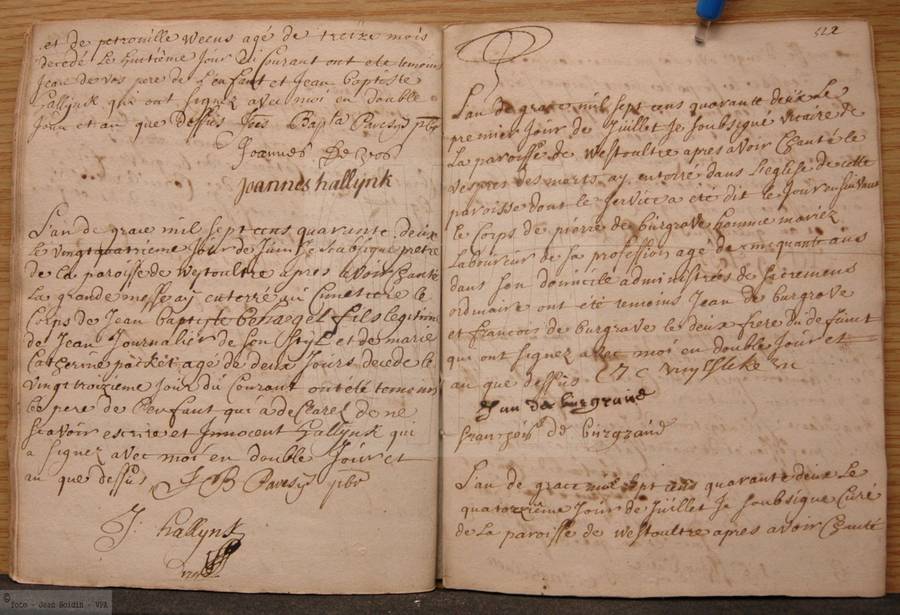 et de petronille Weens agé de treize mois
decedé le huitième jour du Courant ont eté temoins
Jean de vos pere de l'enfant et Jean baptiste
hallijnk qui ont signez avec moi en double
Jour et an que dessus Joes Bapta Paresijs pbr
Joannes De vos
joannes hallynk
L'an de grace mil sept cens quarante deux
le vingtquatrième Jour de Juin Je soubsigné pretre
de la paroisse de westoultre apres avoir Chanté
La grande messe ay enterré au Cimetiere le
Corps de Jean baptiste fils legitime
de Jean Journalier de son Stijl et de marie
Catherine agé de deux Jours decedé le
vingt troizieme jour du Courant ont eté temoins
le pere de l'enfant qui a declarez de ne
scavoir escrire et Innocent hallijnk qui
a signez avec moi en double Jour et
an que dessus J B Paresijs pbr
J: hallynk
522
L'an de grace mil sept cens quarante deux Le
premier Jour de Juillet Je soubsigné vicaire de
La paroisse de westoultre apres avoir Chanté le
vespres des morts ay enterré dans L'eglise de cette
paroisse dont le service a eté dit le Jour ensuivant
le Corps de pierre de burgrave homme mariez
Laboureur de sa profession agé de cinquante ans
dans son domicile administrées de sacremens
ordinaire ont eté temoins Jean de burgrave
et francois de burgrave le deux frere du defunt
qui ont signez avec moi en double Jour et
an que dessus
Jan de burgraue
françois de burgraue
L'an de grace mil sept cens quarante deux Le
quatorzième Jour de Juillet Je soubsigné Curé
de La paroisse de westoultre apres avoir Chanté
© foto - Jean Goidin - VPA